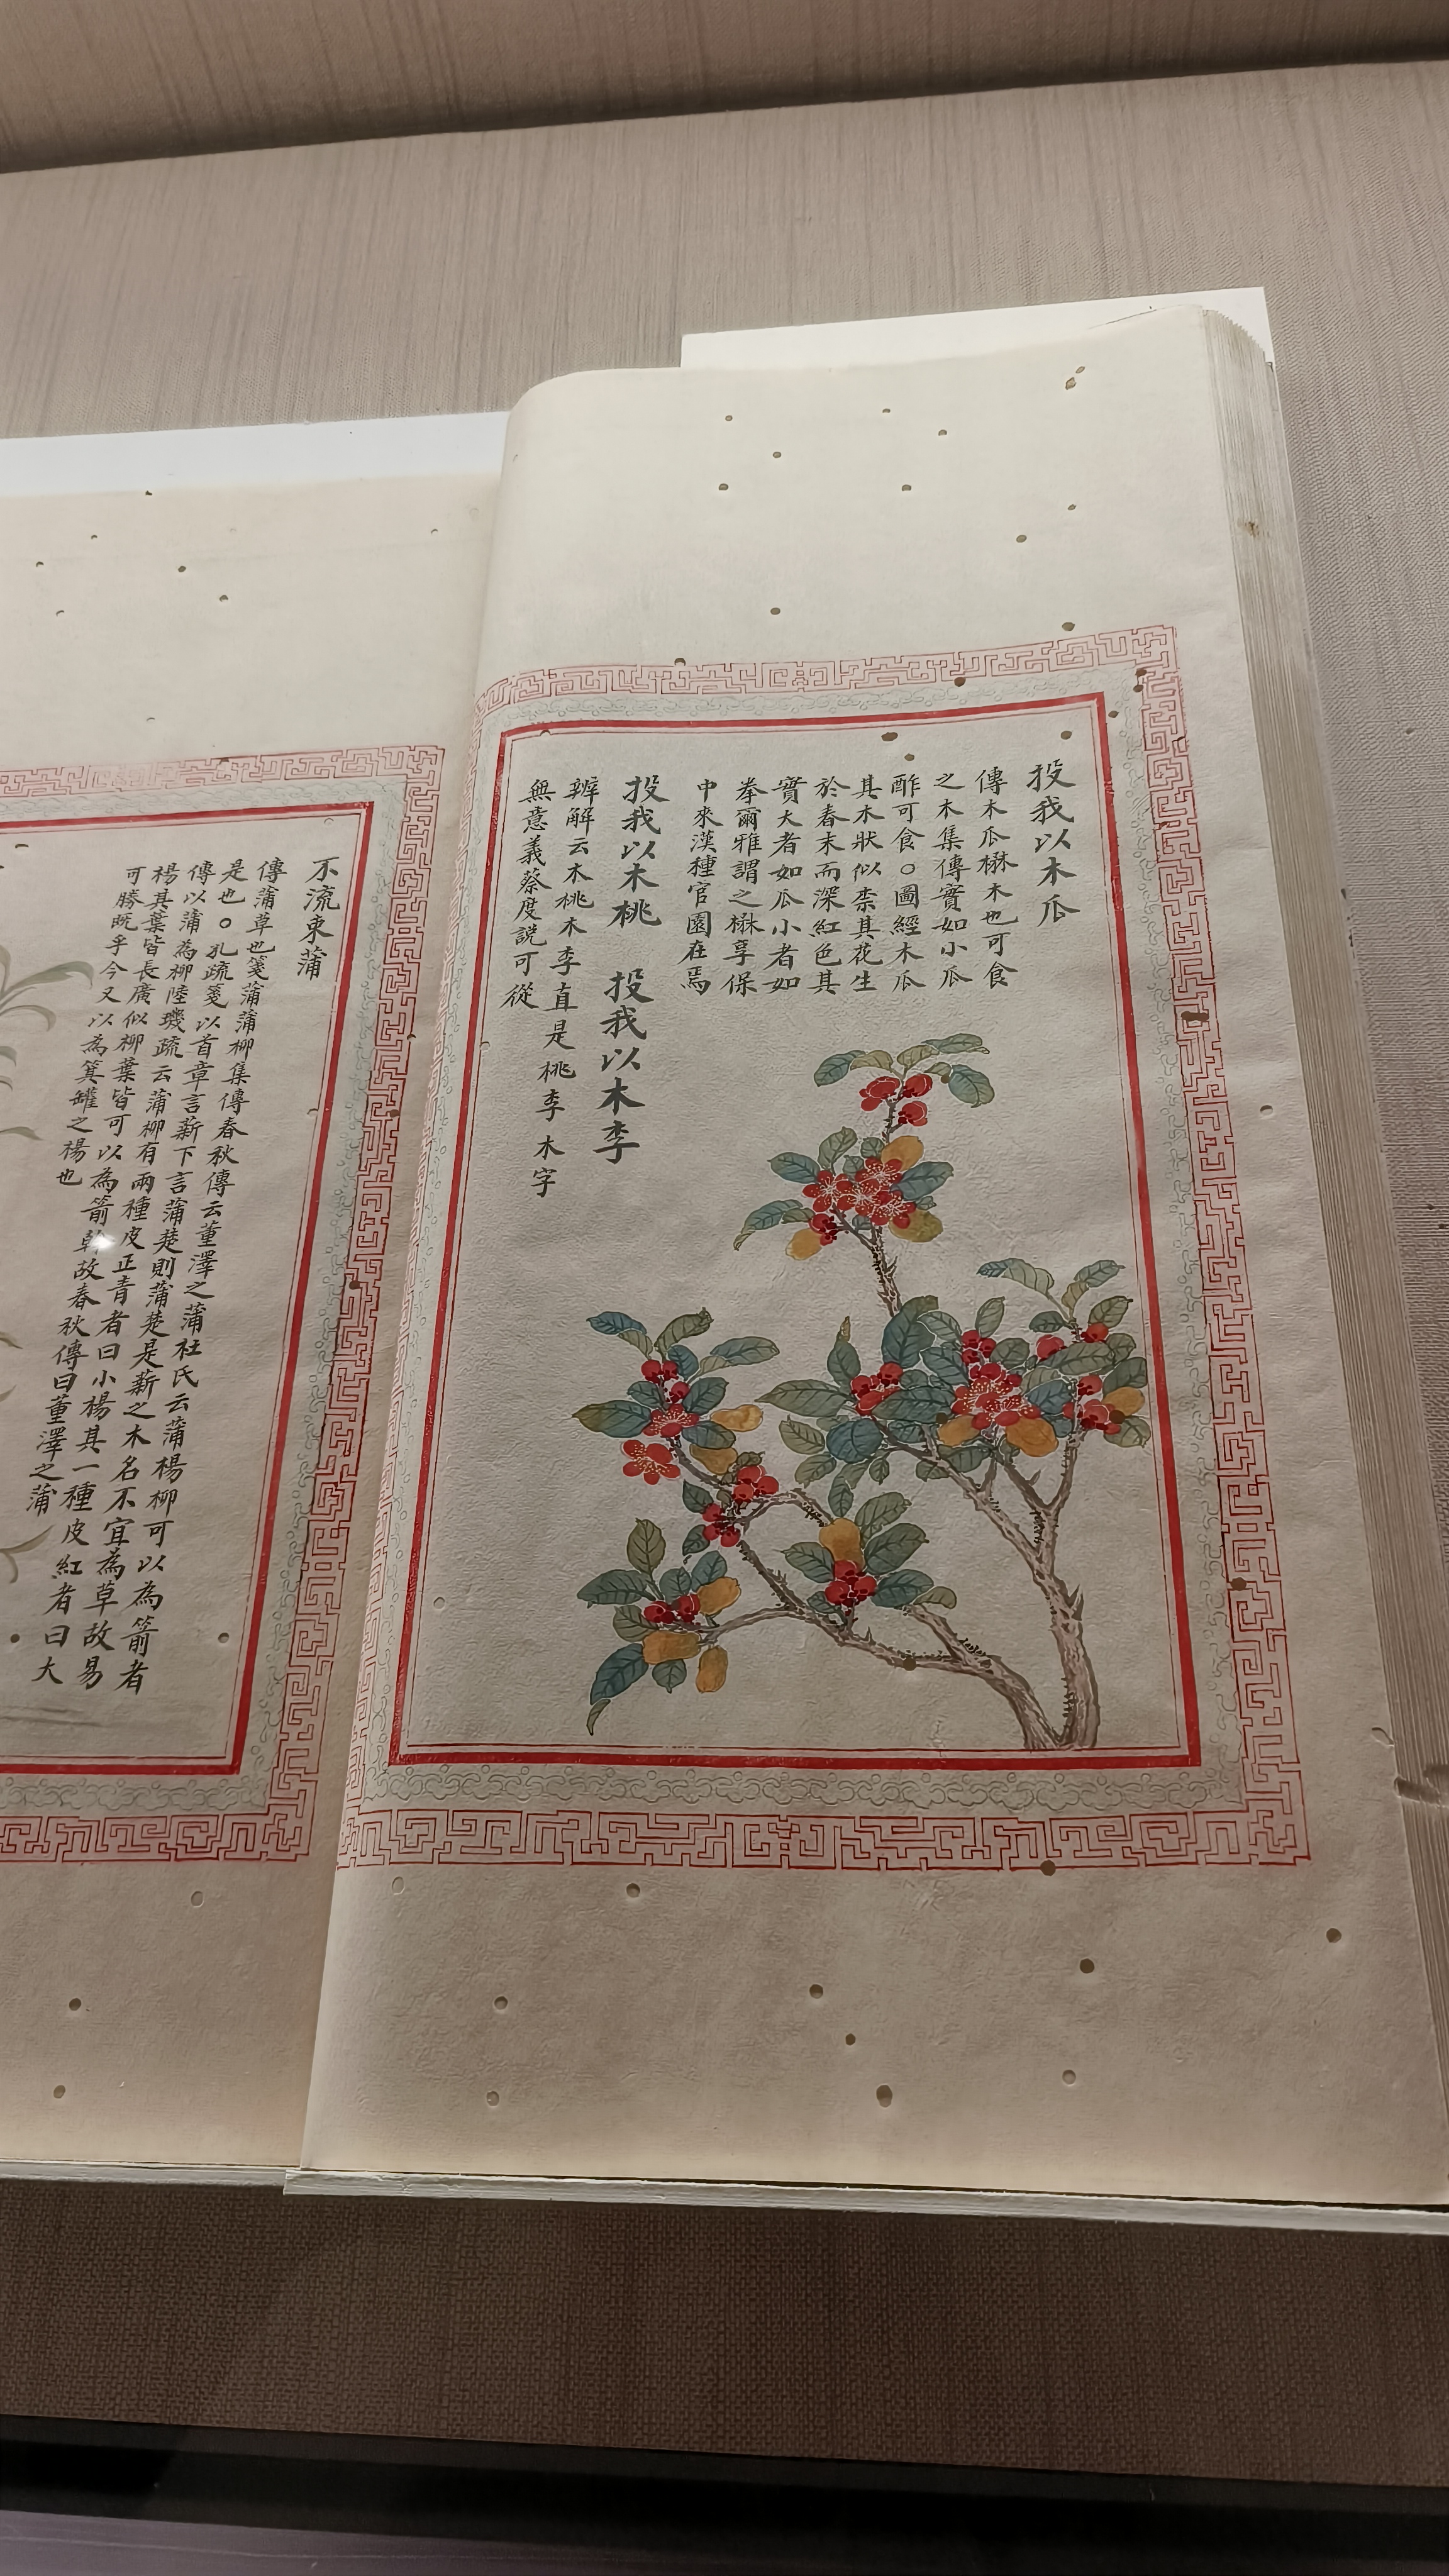 投我以木瓜
傳木瓜楙木也可食
之木集傳實如小瓜
酢可食○圖經木瓜
其木狀似柰其花生
於春末而深紅色其
實大者如瓜小者如
拳爾雅謂之楙享保
中來漢種官園在焉
投我以木桃　投我以木李
辨解云木桃木李直是桃李木字
無意義蔡度說可從
不流束蒲
傳蒲草也箋蒲蒲柳集傳春秋傳云董澤之蒲杜氏云蒲楊柳可以為箭者
是也○孔疏箋以首章言薪下言蒲楚則蒲楚是薪之木名不宜為草故易
傳以蒲為柳陸璣疏云蒲柳有兩種皮正青者曰小楊其一種皮紅者曰大
楊其葉皆長廣似柳葉皆可以為箭幹故春秋傳曰董澤之蒲
可勝既乎今又以為箕罐之楊也